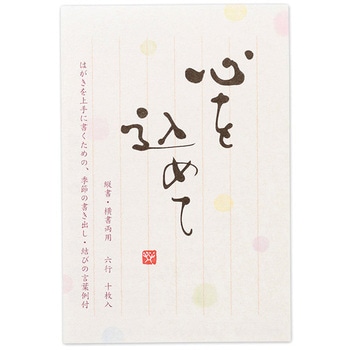 心を
込めて
縦書・横書両用　六行　十枚入
はがきを上手に書くための、季節の書き出し・結びの言葉例付